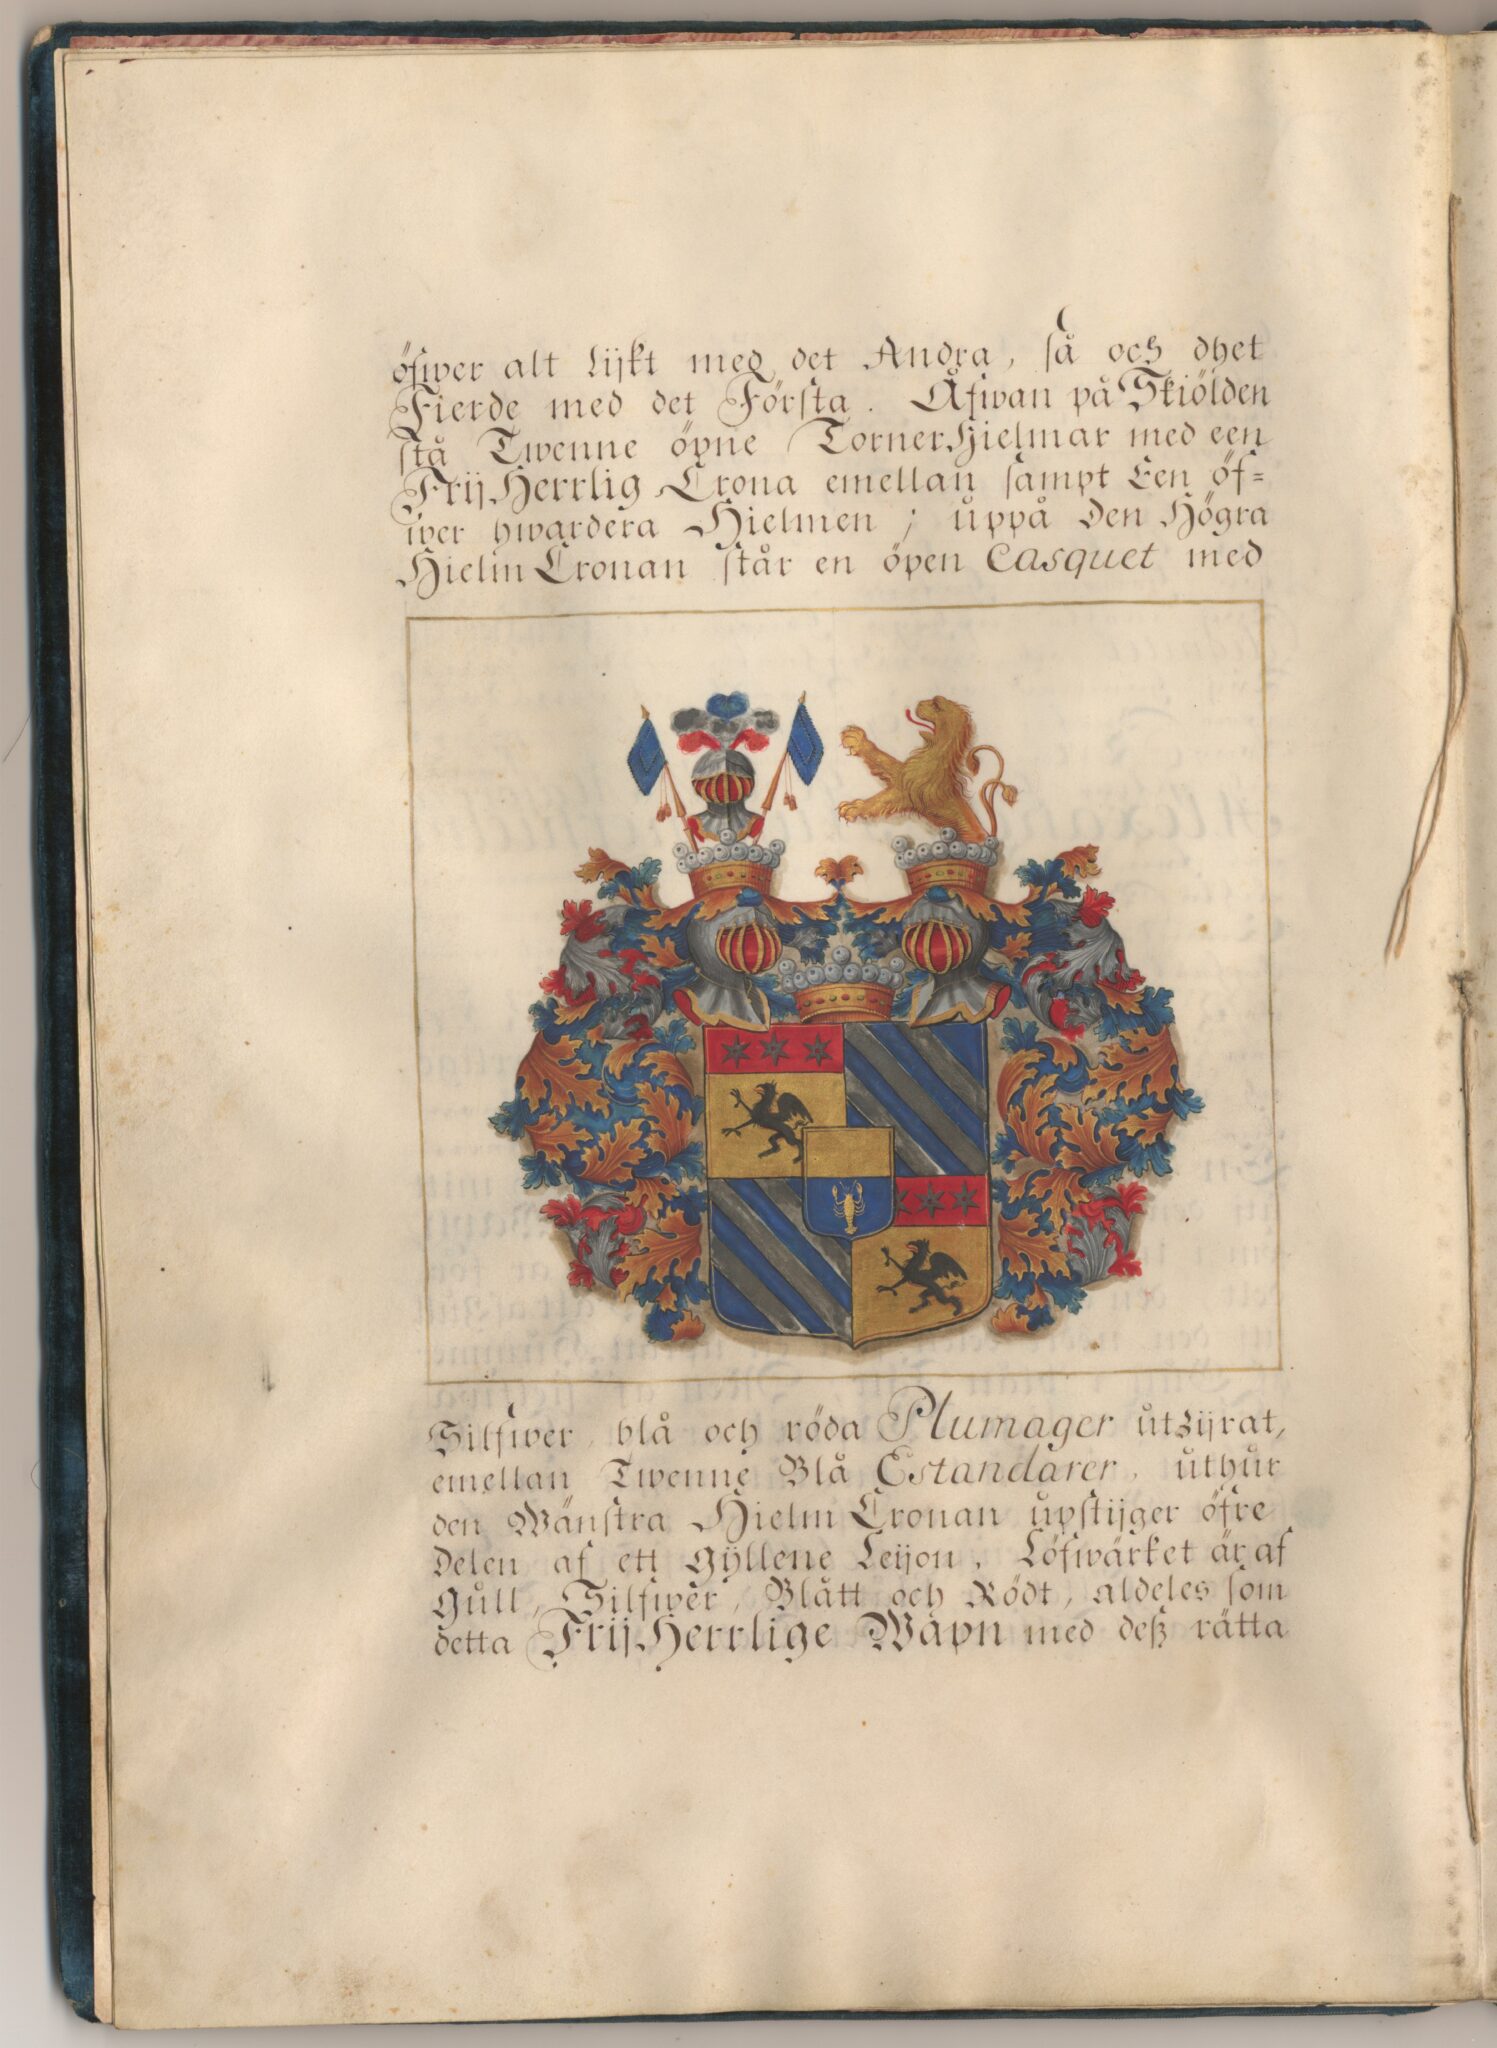 öfwer alt lijkt med det Andra, så och dhet
Fierde med det Första. Åfwan på Skiölden
stå Twenne öpne TornerHielmar med een
FrijHerrlig Crona emellan sampt Een öf=
wer hwardera Hielmen; uppå den Högra
HielmCronan står en öpen Casquet med
Silfwer, blå och röda Plumager utzijrat,
emellan Twenne Blå Estandarer, uthur
den Wänstra HielmCronan upstijger öfre
delen af ett gÿllene Leijon, Löfwärket är af
Gull, Silfwer, Blått och Rödt, aldeles som
detta FrijHerrlige Wapn med deß rätta